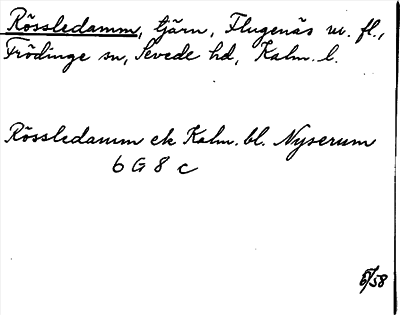 Rössledamm, tjärn, Flugenäs m. fl.,
Frödinge sn, Sevede hd, Kalm. l.
Rössledamm ek Kalm. bl. Nyserum
6 G 8 c
6/58